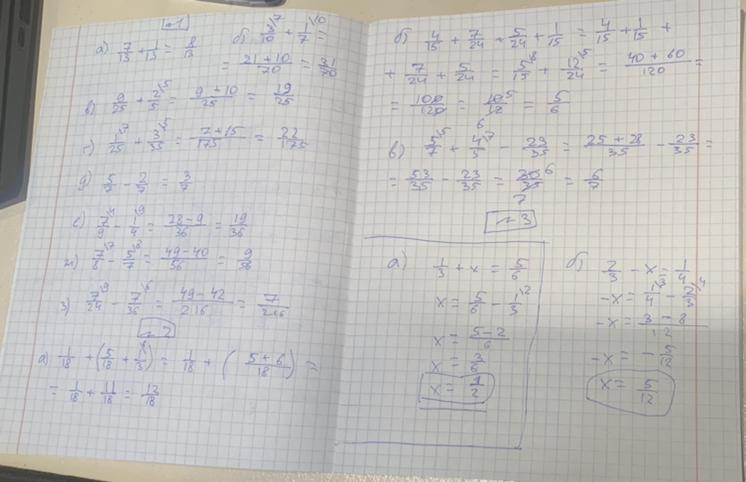 №1
а) 7/13 + 1/13 = 8/13
б) 3/10 \7 + 1/7 \10 =
= (21+10)/70 = 31/70
в) 9/25 + 2/5 \5 = (9+10)/25 = 19/25
г) 1/25 \7 + 3/35 \5 = (7+15)/175 = 22/175
д) 5/7 - 2/7 = 3/7
е) 7/9 \4 - 1/4 \9 = (28-9)/36 = 19/36
ж) 7/8 \7 - 5/7 \8 = (49-40)/56 = 9/56
з) 7/24 \9 - 7/36 \6 = (49-42)/216 = 7/216
№2
а) 1/18 + (5/18 + 1/3 \6) = 1/18 + ( (5+6)/18 ) =
= 1/18 + 11/18 = 12/18
б) 4/15 + 7/24 + 5/24 + 1/15 = 4/15 + 1/15 +
+ 7/24 + 5/24 = 5/15 \8 + 12/24 \5 = (40+60)/120 =
= 100/120 = 10/12 = 5/6
в) 5/7 \5 + 4/5 \7 - 23/35 = (25+28)/35 - 23/35 =
= 53/35 - 23/35 = 30/35 = 6/7
№3
а) 1/3 + x = 5/6
x = 5/6 - 1/3 \2
x = (5-2)/6
x = 3/6
x = 1/2
б) 2/3 - x = 1/4
-x = 1/4 \3 - 2/3 \4
-x = (3-8)/12
-x = - 5/12
x = 5/12